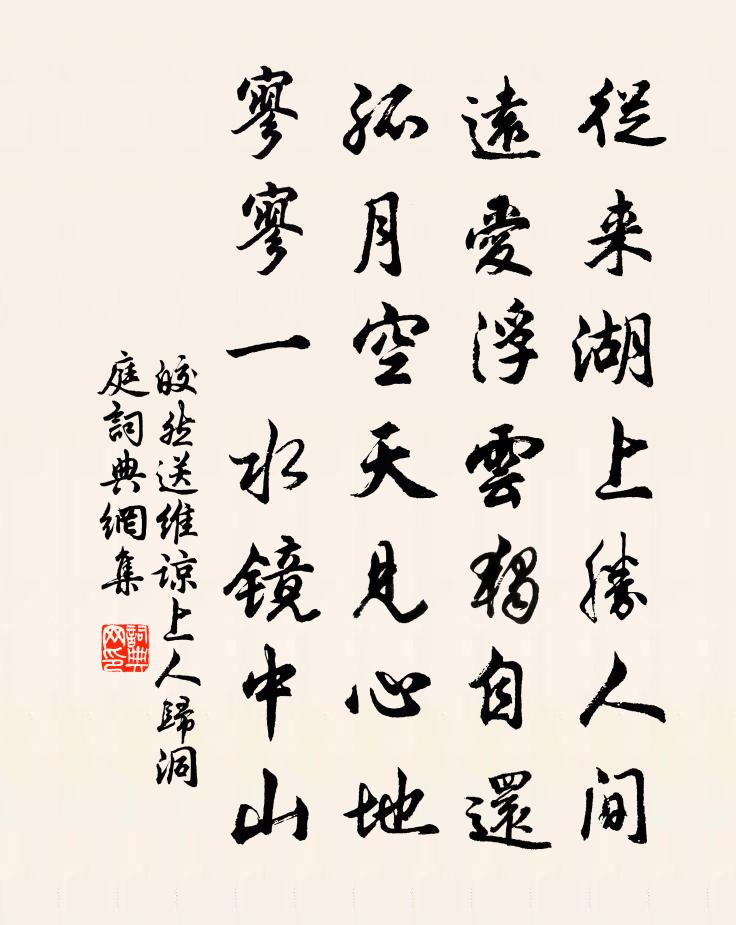 從来湖上勝人間
遠愛浮雲獨自還
孤月空天見心地
寥寥一水鏡中山
皎然送維諒上人歸洞
庭詞典網集
詞典
网印